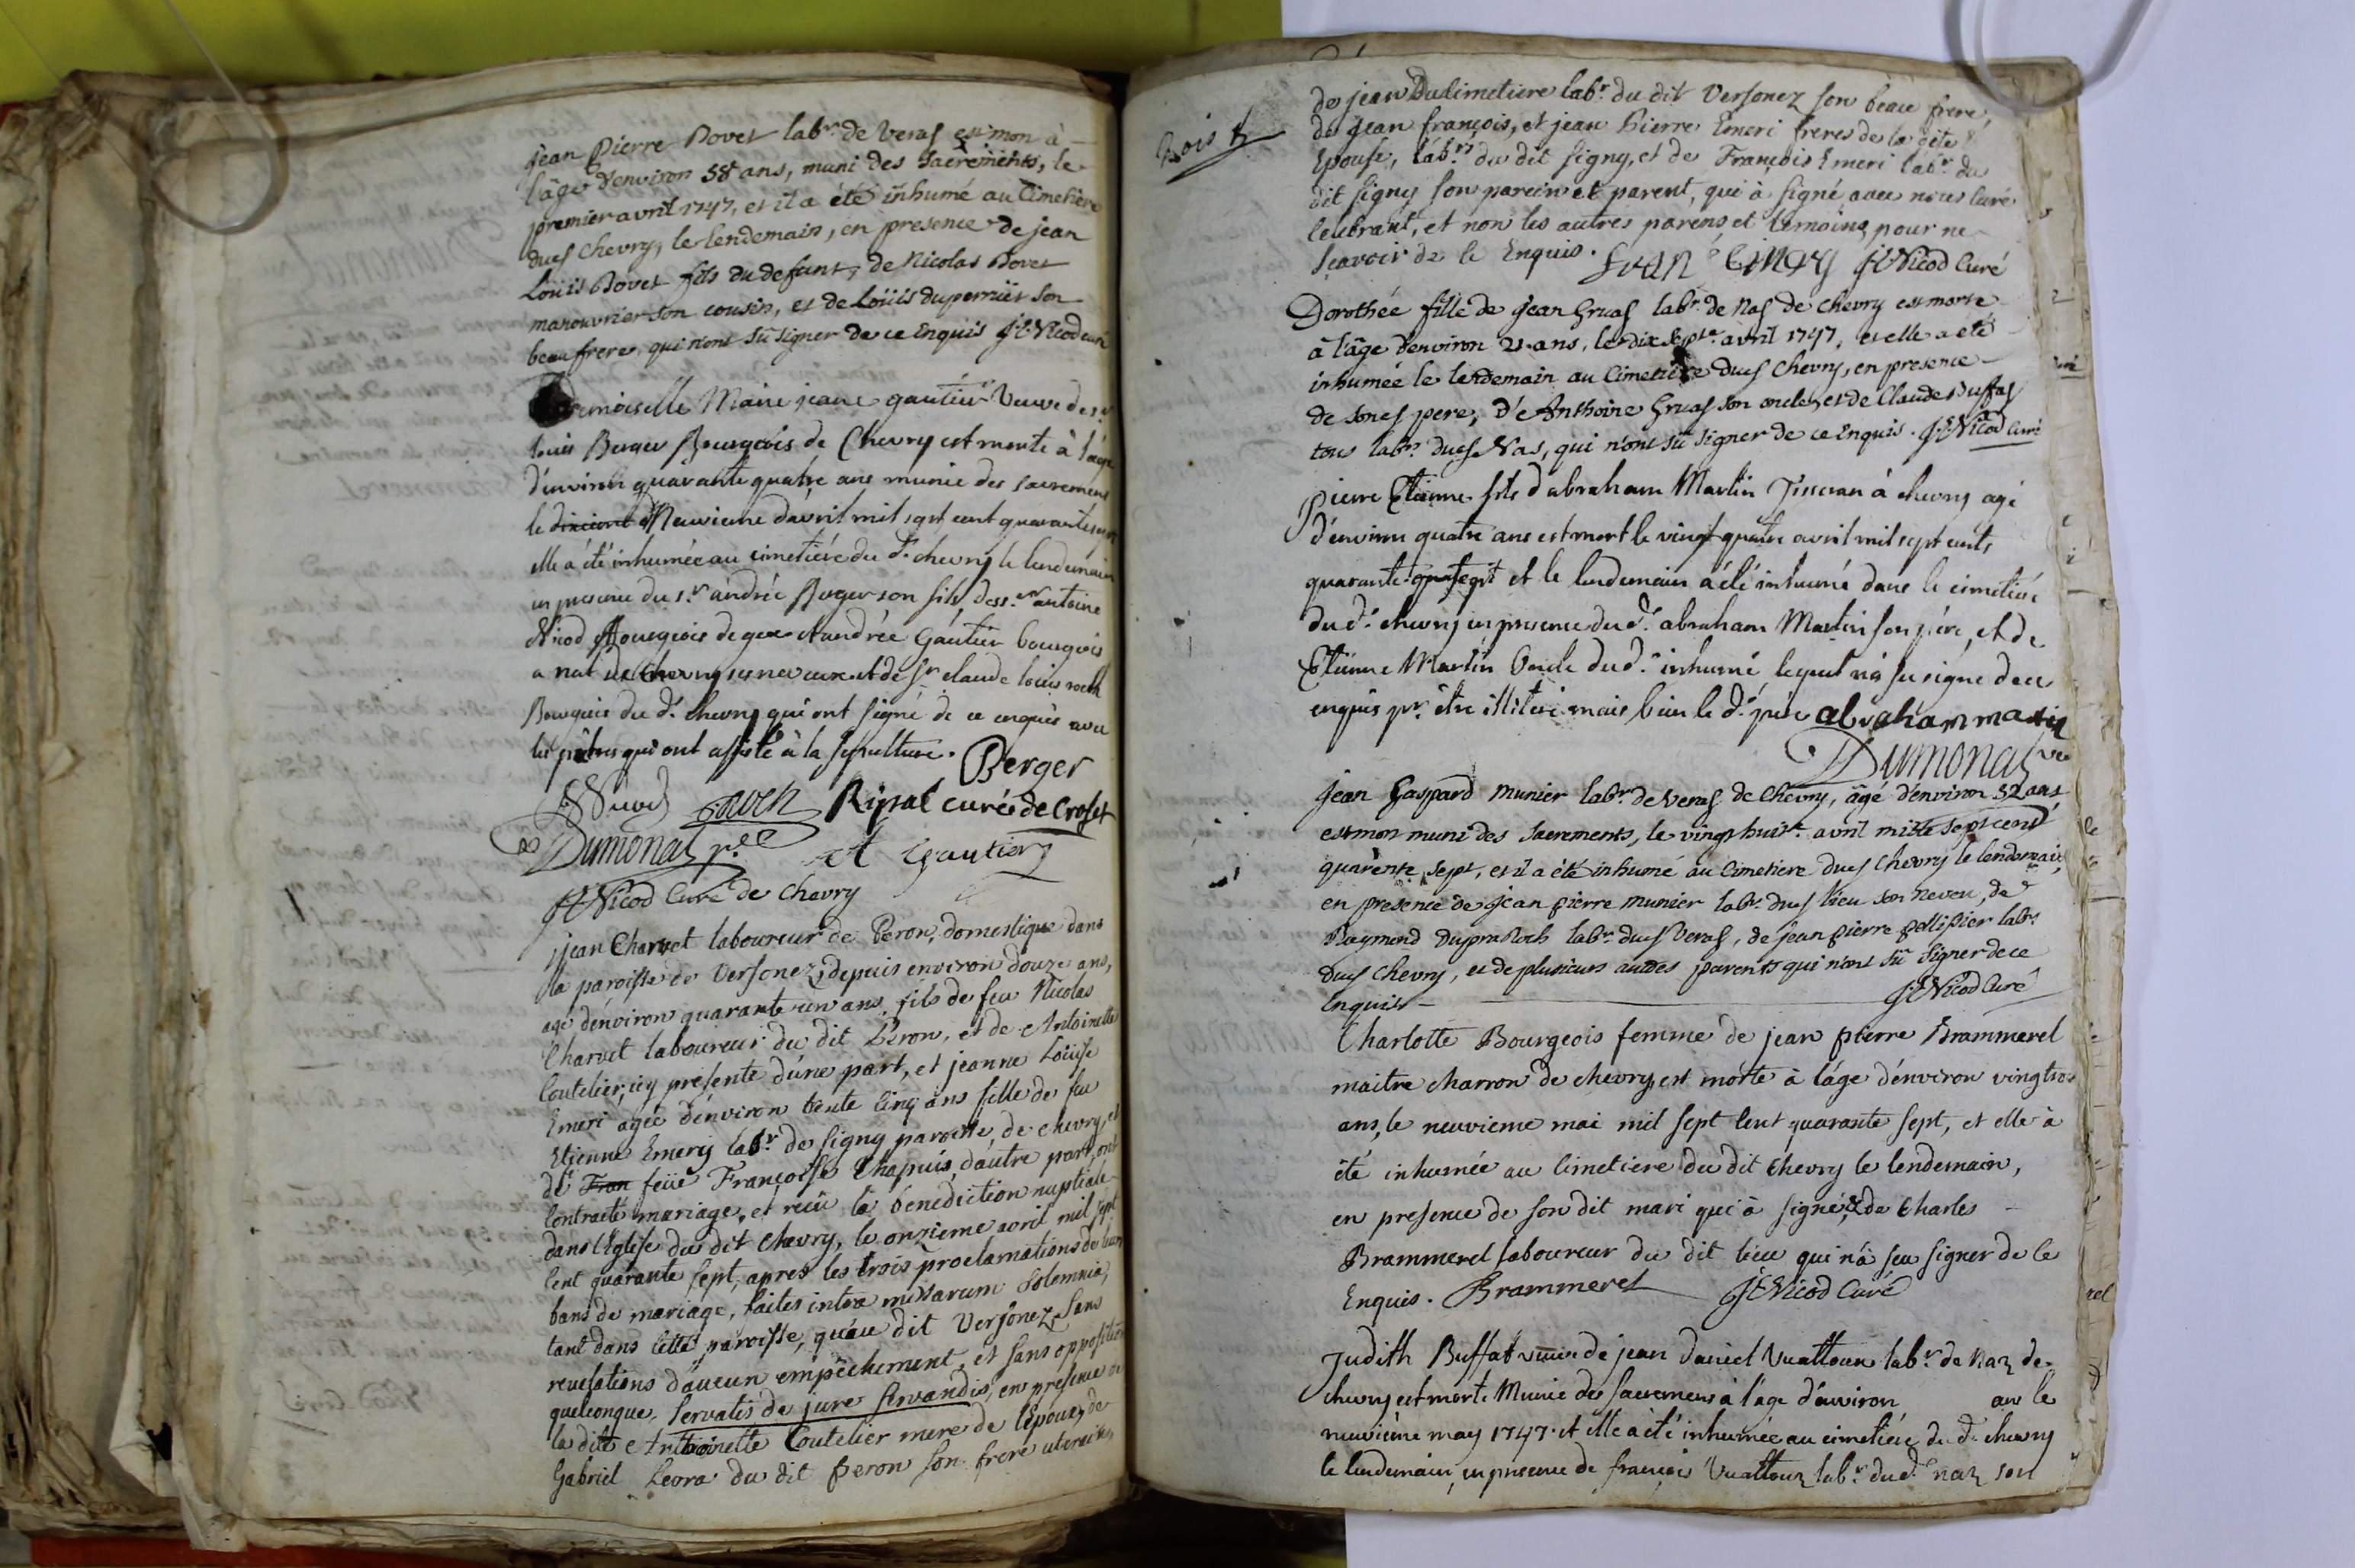 jean Pierre Bovet labr. de Veras est mort à
l'âge d'environ 58 ans, muni des Sacrements, le
premier avril 1747, et il a été inhumé au Cimetière
dud Chevry, le lendemain, en presence de jean
Loüis Bovet fils du defunt, de Nicolas Bovet
manouvrier son cousin, et de Loüis dupernüer son
beau frere, qui n'ont sü signer de ce Enquis J C Nicod curé
Demoiselle Marie jeane gautier Veuve de sr.
louis Berger Bourgeois de Chevry est morte à l'age
d'environ quarante quatre ans munie des sacremens
le Neuvieme d'avril mil sept cent quarante sept
elle a été inhumée au cimetiére du dt. chevry le lendemain
en presence du sr. andrée Berger son fils, des srs. antoine
Nicod Bourgeois de gex et andrée Gautier bourgeois
a nat de Chevry ses neveux et de Sr claude louis roch
Bourgeois du dt. chevry qui ont signé de ce enquis avec
les prêtres qui ont assisté à la sepulture. Berger
Nicod roch Ripal curée de Croset
Dumonal A Gautier
J C Nicod Curé de Chevry
jean Charvet laboureur de Peron, domestique dans
la paroisse de Versonez, depuis environ douze ans,
agé d'environ quarante un ans, fils de feu Nicolas
Charvet laboureur du dit Peron, et de Antoinette
Coutelier, icy presente d'une part, et jeanne Loüise
Emeri agée d'environ trente cinq ans fille de feu
Etienne Emery labr. de signy paroisse de chevry, et
de Fran feüe Françoise Chapuis, d'autre part, ont
Contracté mariage, et reçu la benediction nuptiale
dans l'Eglise du dit Chevry, le onzieme avril mil sept
Cent quarante sept, apres les trois proclamations de leurs
bans de mariage, faites intra missarum solemnia,
tant dans cette paroisse, qu'au dit Versonez, sans
revelations d'aucun empêchement, et sans opposition
quelconque, Servatis de jure servandis, en presence de
la dite Antoinette Coutelier mere de l'époux, de
Gabriel Leora du dit Peron son frere uterain,
de jean Ducimetiere labr. du dit Versonez son beau frere,
de jean françois, et jean Pierre Emeri freres de la dite
Epouse, labrs. du dit signy, et de François Emeri labr. du
dit signy son parein et parent, qui à signé avec nous Curé
Celebrant, et non les autres parens et temoins pour ne
Sçavoir de ce Enquis. J C Nicod Curé
Dorothée fille de jean Gruas labr. de Nas de Chevry est morte
à l'âge d'environ 21 ans, le dix septe. avril 1747, et elle a eté
inhumée le lendemain au Cimetiere dud Chevry, en presence
de sond pere, d'Anthoine Gruas son oncle, et de Claude Buffas
tous labrs. dud Nas, qui n'ont sü signer de ce Enquis. J C Nicod Curé
Pierre Etienne fils d'abraham Martin Tisseran à chevry agé
d'environ quatre ans est mort le vingt quatre avril mil sept cents
quarante sept et le lendemain a été inhumé dans le cimetiére
du dt. chevry en presence du dt. abraham Martin son pére, et de
Etienne Martin Oncle du dt. inhumé, lequel n'a su signe de ce
enquis pr. être illiteré mais bien le dt. pére abraham martin
Dumonal vre
jean Gaspard Munier labr. de Veras de Chevry, âgé d'environ 52 ans
est mort muni des Sacrements, le vingt huite. avril mille sept cent
quarente sept, et il a été inhumé au Cimetiere dud Chevry le lendemain,
en presence de jean pierre Munier labr. dud lieu son neveu, de
Raymond Dupraroch labr. dud Veras, de jean pierre pellissier labr.
dud Chevry, et de plusieurs autres parents qui n'ont sü signer de ce
Enquis J C Nicod Curé
Charlotte Bourgeois femme de jean pierre Brammerel
maitre charron de chevry, est morte à l'áge d'environ vingt trois
ans, le neuvieme mai mil sept Cent quarante sept, et elle à
été inhumée au Cimetiere du dit Chevry le lendemain,
en presence de son dit mari qui à signé, & de Charles
Brammerel laboureur du dit lieu qui n'à seu signer de ce
Enquis. Brammerel J C Nicod Curé
Judith Buffat de jean daniel Vuattoux labr. de naz de
chevry est morte Munie des sacremens à l'age d'environ ans le
neuviéme may 1747. et elle a été inhumée au cimetiére du dt. chevry
le lendemain, en presence de françois Vuattoux labr. du dt. naz son